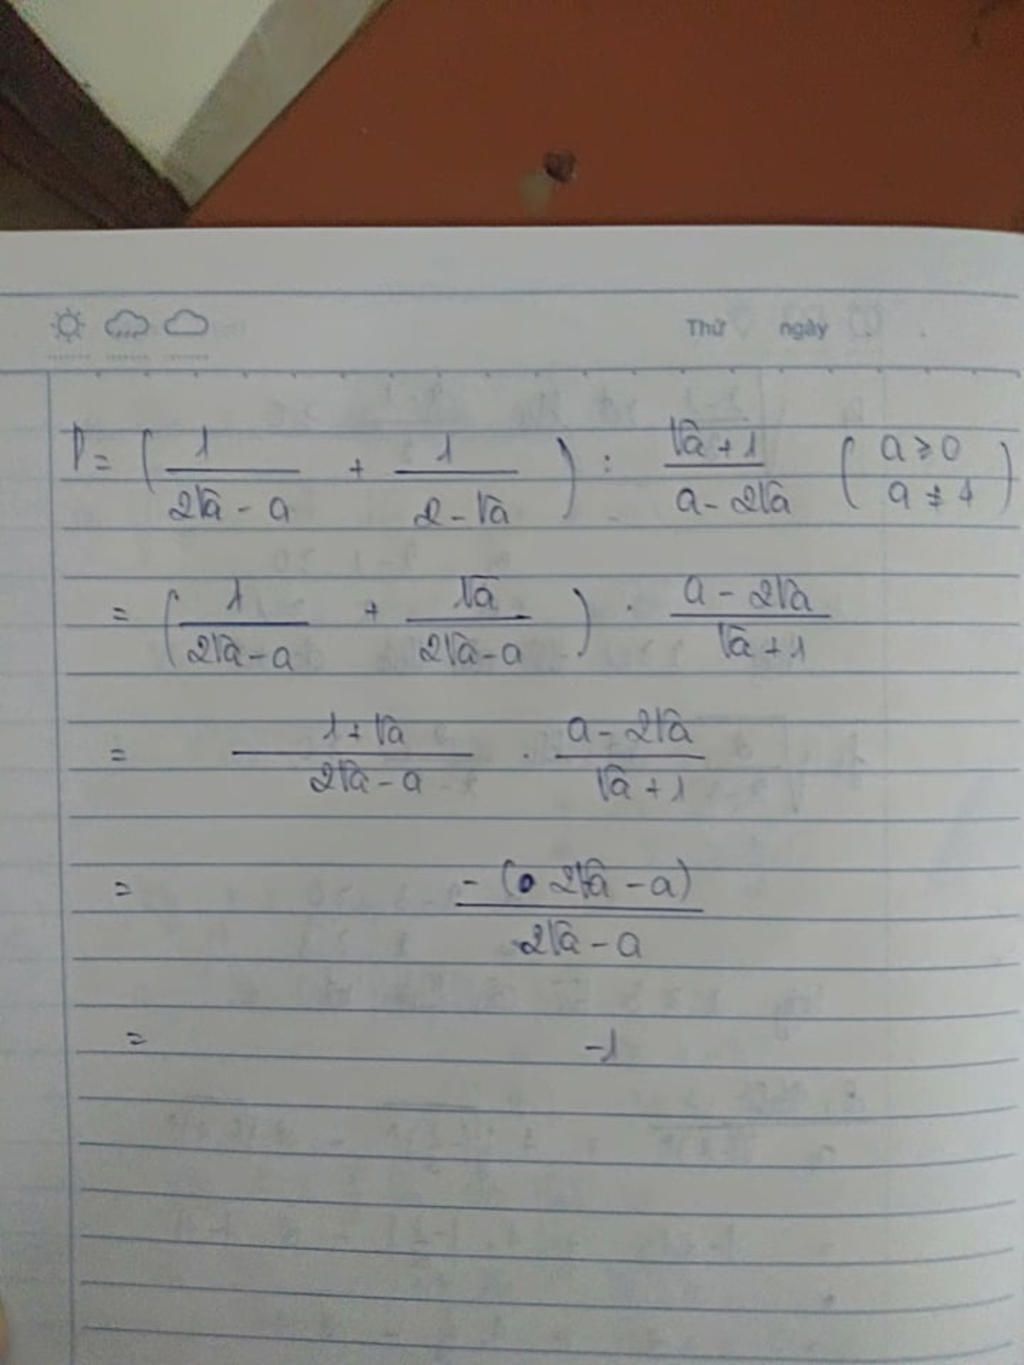 Thứ ngày
P = ( 1/(2√a - a) + 1/(2 - √a) ) : (√a + 1)/(a - 2√a) ( a ≥ 0
a ≠ 4 )
= ( 1/(2√a - a) + √a/(2√a - a) ) . (a - 2√a)/(√a + 1)
= (1 + √a)/(2√a - a) . (a - 2√a)/(√a + 1)
= -(2√a - a)/(2√a - a)
= -1